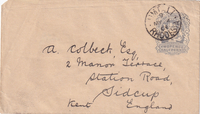 A Colbeck Esq
2 Manor Terrace,
Station Road,
Sidcup
Kent England